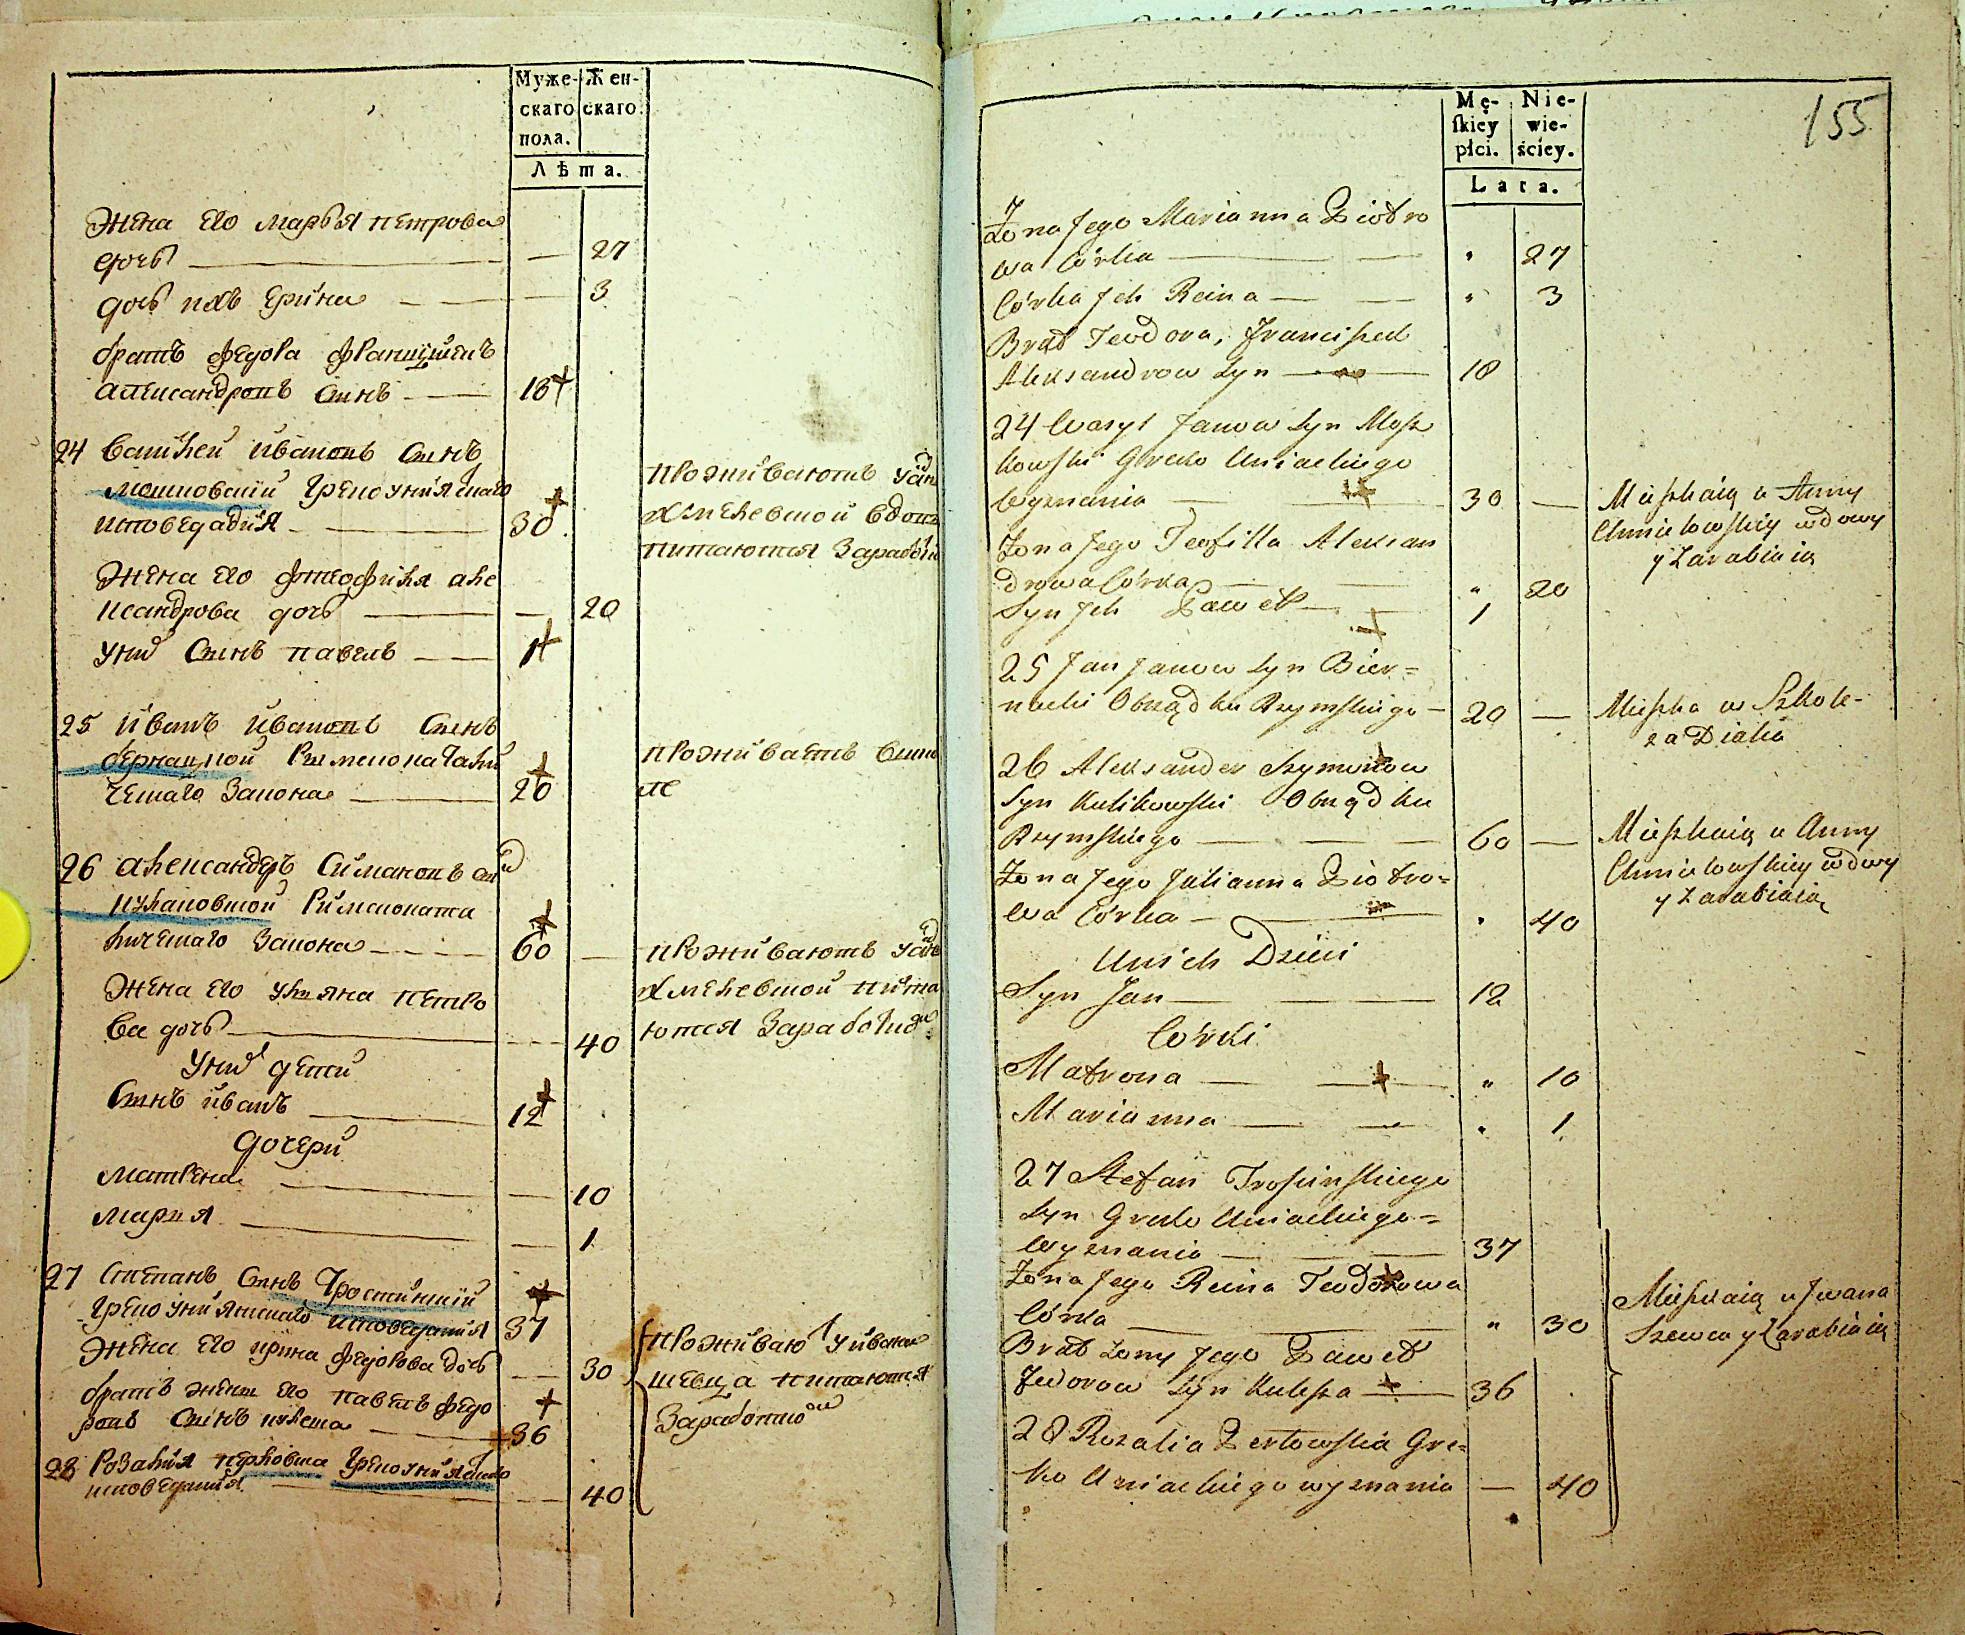 Муже- Жен-
скаго скаго.
пола.
Лѣта.
Жена его марья петрова
дочь — 27
дочь ихъ Ерина — 3
братъ федора францишекъ
александровъ Сынъ 18
24 василей ивановъ Сынъ
мошковский Греко униятскаго
исповедания 30
проживаютъ у
хмелевской вдовы
питаются
Жена его феофиля але
ксандрова дочь — 20
у них Сынъ павелъ 1
25 иванъ ивановъ Сынъ
бернацкой Римскокатали
ческаго Закона 20
проживаетъ вшко
ле
26 александеръ Симановъ
куликовской Римскоката
лическаго Закона 60 —
проживаютъ у
хмелевской пита
ются
Жена его ульяна петро
ва дочь 40
у них дети
Сынъ иванъ 12
дочери
матрена — 10
мария — 1
27 Степанъ Сынъ
Греко униятскаго исповедания 37
Жена его ирина федорова дочь — 30
проживаю у ивана
шевца питаются
братъ жены его павелъ федо
ровъ Сынъ кулеша 36
28 Розалия Греко униятскаго
исповедания — 40
155
Mę- Nie-
ſkiey wie-
płci. ściey.
Lata.
Żona Jego Marianna Piotro
wa Córka — " 27
Córka Jch Reina — " 3
Brat Teodora, Franciszek
Aleksandrow Syn — 18
24 Wasyl Janow Syn Mosz
kowski Greko Uniackiego
wyznania — 30 —
Mieszkaią u Anny
Chmielowskiey wdowy
y Zarabiaią
Żona Jego Teofilla Aleksan
drowa Córka — " 20
Syn Jch Paweł — 1
25 Jan Janow Syn Bier=
nacki Obrządku Rzymskiego — 20 —
Mieszka w Szkole
za Diaka
26 Aleksander Szymonow
Syn Kulikowski Obrządku
Rzymskiego — 60 —
Mieszkaią u Anny
Chmielowskiey wdwy
y Zarabiaią
Żona Jego Julianna Piotro=
wa Córka — " 40
Unich Dzieci
Syn Jan — 12
Córki
Matrona — " 10
Marianna — " 1
27 Stefan
Syn Greko Uniackiego=
Wyznania — 37
Żona Jego Reina Teodorowa
Córka — " 30
Mieszkaią u Jwana
Szewca y Zarabiaią
Brat Żony Jego Paweł
Fedorow Syn Kulesza — 36
28 Rozalia Perłowska Gre=
ko Uniackiego wyznania — 40